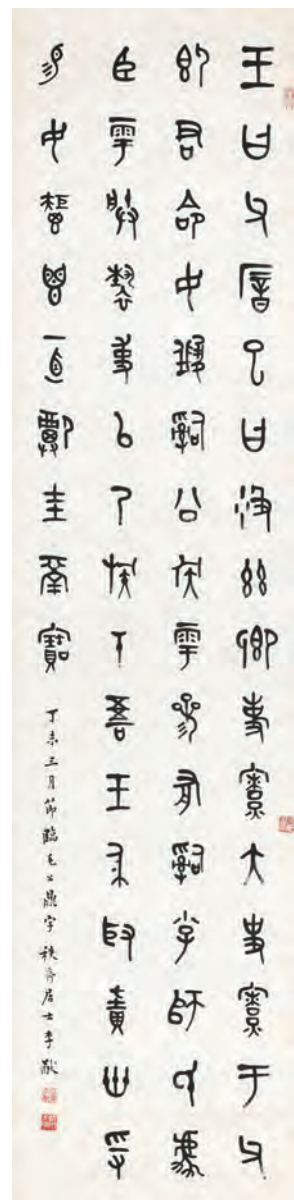 王曰父厝已曰彶茲卿事寮大史寮于父
即君命女司公族雩參有司小子師氏虎
臣雩朕褻事以乃族干吾王身取責卅寽
易女秬鬯一卣祼圭瓚寶
丁未三月節臨毛公鼎字 居士李猷